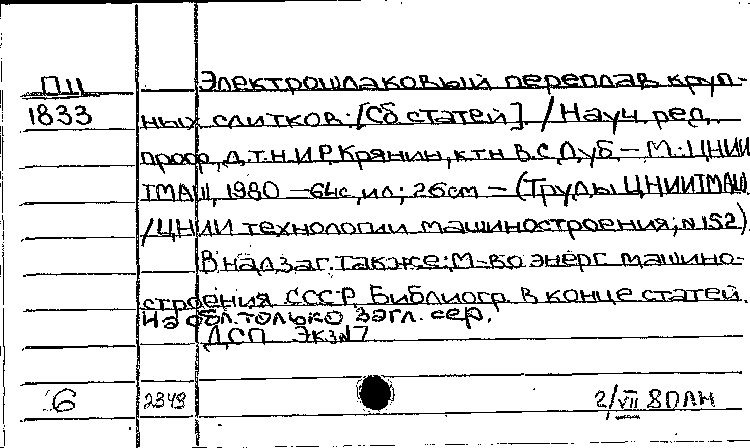 П11 Электрошлаковый переплав круп-
1833 ных слитков: [Сб статей] / Науч. ред.
проф, д.т.н И.Р. Крянин, к.т.н В.С. Дуб. – М.: ЦНИИ
ТМАШ, 1980 – 64с, ил; 26см – (Труды ЦНИИТМАШ
/ЦНИИ технологии машиностроения; N152)
В надзаг. также: М-во энерг машино-
строения СССР. Библиогр. в конце статей.
На обл. только загл. сер.
ДСП Экз N7
6 2349 2/VII 80